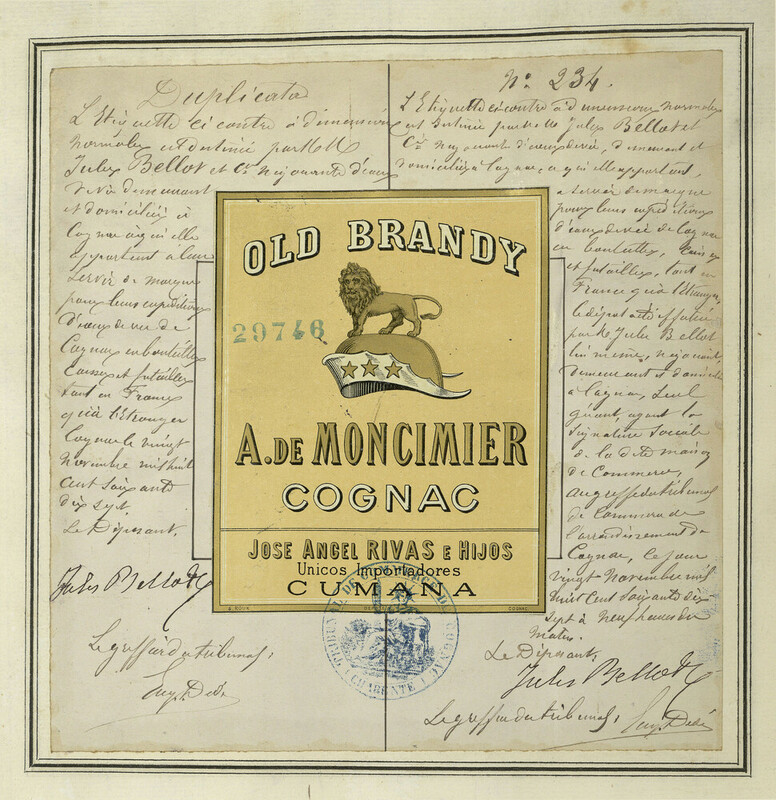 Duplicata
L'Etiquette ci contre à dimension
normales est destinée par MM
Jules Bellot et Cie négociants d'eaux
de vie demeurant
et domiciliés à
Cognac à qui elle
appartient à leur
servir de marque
pour leurs expéditions
d'eaux de vie de
Cognac en bouteilles
Caisses et futailles
tant en France
qu'à l'étranger
Cognac le vingt
Novembre mil huit
cent soixante
dix sept.
Le Déposant,
Jules Bellot &
Le greffier du tribunal,
Eug. Dédé
No 234.
L'Etiquette ci contre à dimensions normales
est destinée par MM Jules Bellot et
Cie négociants d'eaux de vie, demeurant et
domiciliés à Cognac, à qui elle appartient,
à servir de marque
pour leurs expéditions
d'eaux de vie de Cognac
en bouteilles, Caisses
et futailles, tant en
France qu'à l'étranger,
le dépôt a été effectué
par M. Jules Bellot
lui même, négociant
demeurant et domicilié
à Cognac, seul
gérant, ayant la
signature sociale
de la dite maison
de Commerce,
au greffe du tribunal
de Commerce de
l'arrondissement de
Cognac, ce jour
vingt Novembre mil
huit cent soixante dix
sept à neuf heures du
matin.
Le Déposant,
Jules Bellot &
Le greffier du tribunal,
Eug. Dédé
OLD BRANDY
29746
A. DE MONCIMIER
COGNAC
JOSE ANGEL RIVAS E HIJOS
Unicos Importadores
CUMANA
COGNAC
TRIBUNAL DE COMMERCE DE COGNAC
(CHARENTE)